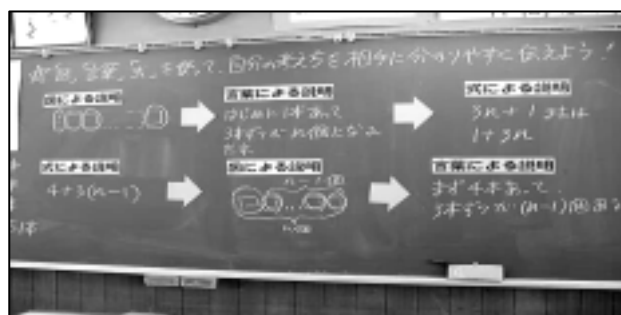 図、言葉、式を使って、自分の考えを相手に分かりやすく伝えよう!
図による説明
言葉による説明
はじめに1本あって
3本ずつが n個
式による説明
3n+1 または
1+3n
式による説明
4+3(n-1)
図による説明
言葉による説明
まず4本あって、
3本ずつが(n-1)個ある